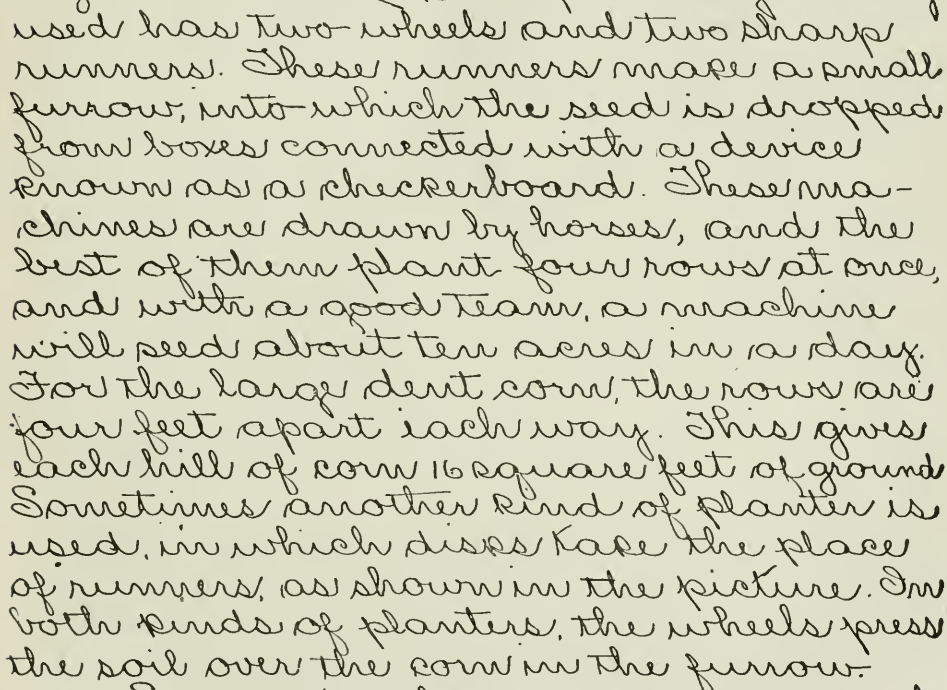 used has two wheels and two sharp
runners. These runners make a small
furrow, into which the seed is dropped
from boxes connected with a device
known as a checkerboard. These ma-
chines are drawn by horses, and the
best of them plant four rows at once,
and with a good team, a machine
will seed about ten acres in a day.
For the large dent corn, the rows are
four feet apart each way. This gives
each hill of corn 16 square feet of ground
Sometimes another kind of planter is
used, in which disks take the place
of runners, as shown in the picture. In
both kinds of planters, the wheels press
the soil over the corn in the furrow.